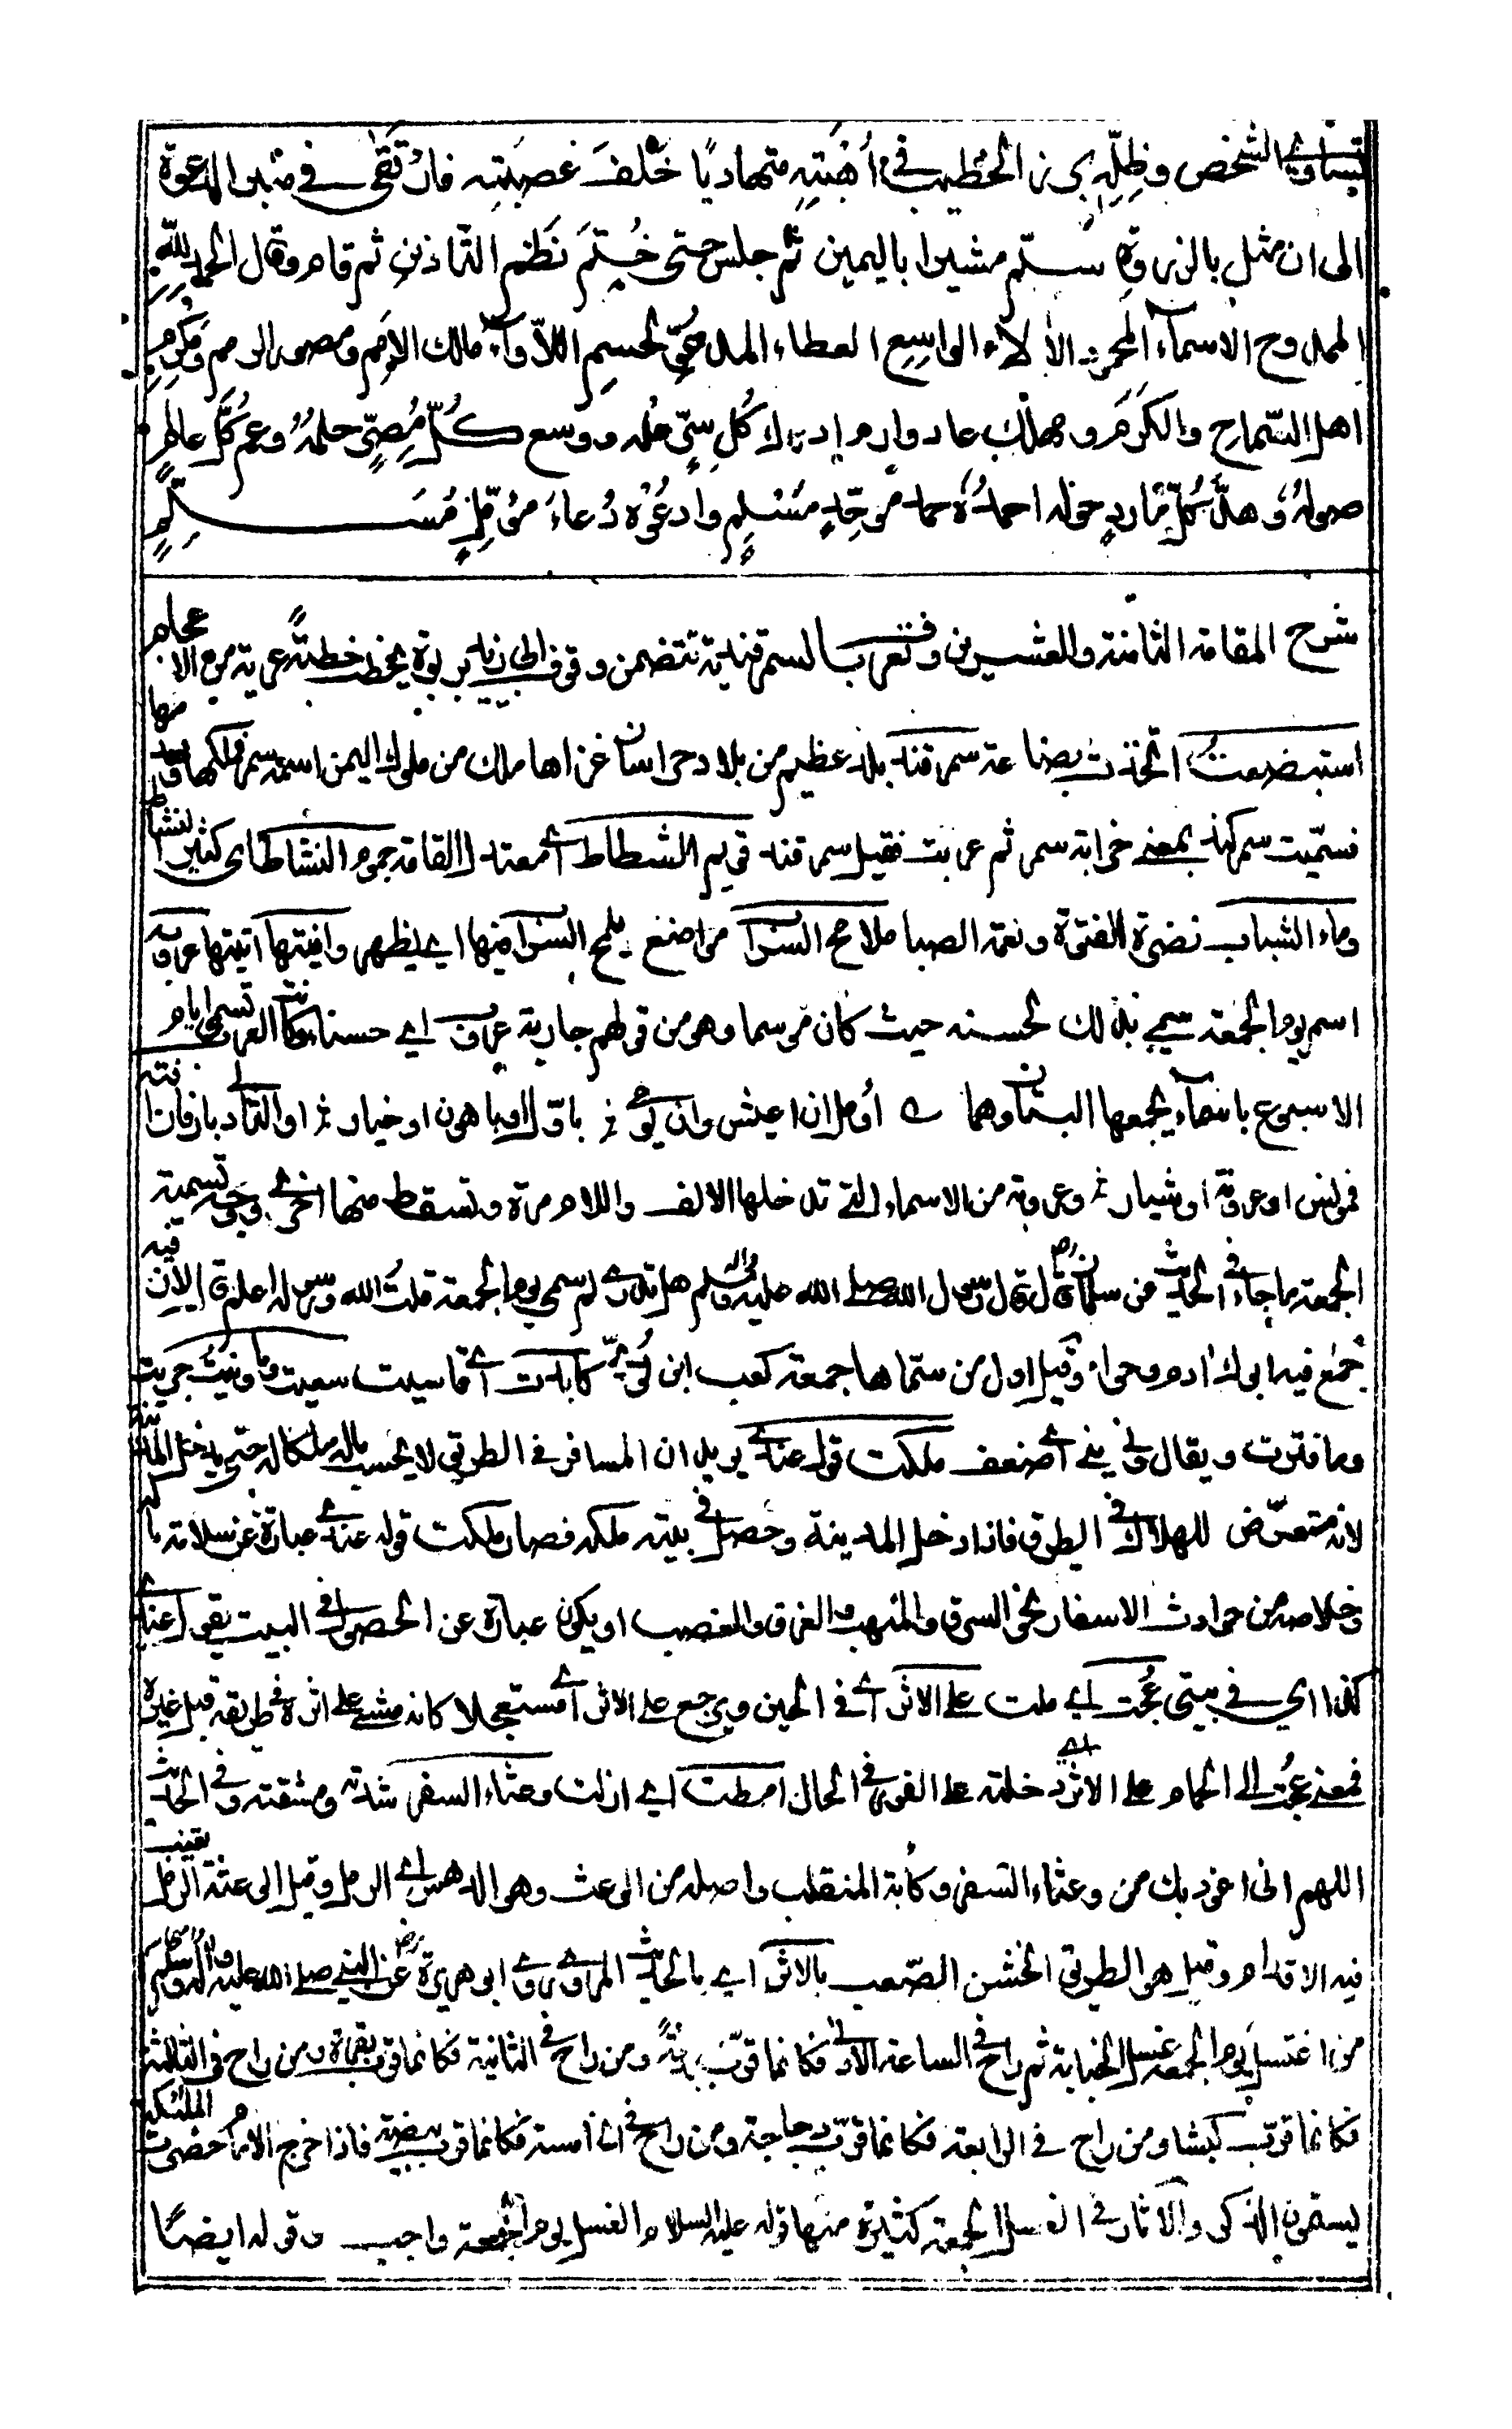 تساوي الشخص وظله برز الخطيب في أُهْبَتِه متهاديًا خَلْفَ عُصبَتِه فارتقى في منبر الدعوة
الى ان مثل بالذروة سلّم مشيرا باليمين ثم جلس حتى خُتِمَ نَظْم التاذين ثم قام وقال الحمد للّٰه
الممدوح الاسمآء المحمود الاٰلآء الواسع العطاء المدعوّ لحسم اللّاوآء مالك الامم ومصور الرمم ومكرم
اهل السّماح والكَرَم ومهلك عاد وارم ادرك كُل سرٍّ علمه ووسع كُلَّ مُصِرٍّ حلمهُ وعم كُلَّ عالم
طوله وهدَّ كُلَّ مارد حوله احمدُهُ حمد موحِّدٍ مُسْلِمٍ وادعُوْه دُعاءَ مؤمِّلٍ مُسَلِّمٍ
شرح المقامة الثامنة والعشرين وتعرف بالسمرقندية تتضمن وقوف ابي زيد بربوة يخطب خطبةً عرية من الاعجام
استبضعتُ اتخذت بضاعة سمرقند بلد عظيم من بلاد خراسان غزاها ملك من ملوك اليمن اسمه سمر فملكها وهدمها
فسمّيت سمركند بمعنے خرابة سمر ثم عربت فقيل سمرقند قويم الشطاط اے معتدل القامة جموم النشاط اى كثير النشاط
وماء الشباب نضرة الفتوة ونعمة الصبا ملامح السراب مواضع يلمح السراب فيها اے يظهر وافيتها اتيتها عروبة
اسم يوم الجمعة سمے بذلك لحسنه حيث كان موسما وهو من قولهم جارية عروب اے حسناء وكانت العرب تسمى ايام
الاسبوع باسمآء يجمعها البيتان وهما ے اؤمل ان اعيش وان يومے ؛ باوّل او باهون او جبار ؛ او التالے دبار فان افته
فمونس او عروبة او شيار ؛ وعروبة من الاسماء التے تدخلها الالف واللام مرة وتسقط منها اخرے وجه تسمية
الجمعة ما جاء في الحديث عن سلمان رض قال قال رسول الله صلے الله عليه واله وسلم هل تدرے لم سمي يوم الجمعة قلت الله ورسوله اعلم قال لان فيه
جمع فيه ابوك ادم وحواء وقيل اول من سمّاها جمعة كعب ابن لُؤَيّ كابدت اے قاسيت سعيت وما ونيت جريت
وما فترت ويقال ونٰى ينے اے ضعف ملكت قول عندے يريد ان المسافر في الطريق لا يحسب ماله ملكا له حتى يدخل المدينة
لانه متعرّض للهلاك في الطرق فاذا دخل المدينة وحصل في بيته ملكه فصار ملكت قوله عندے عبارة عن سلامة ماله
وخلاصه من حوادث الاسفار نحو السرق والنهب والغرق والغصب او يكون عبارة عن الحصول في البيت يقول عندے
كذا اي في بيتى عُجت اے ملت على الاثر اے في الحين ويرجع على الاثر اے مستعجلا كانه مشے على اثره في طريقه قبل غيره
فمعنے عجت الى الحمام على الاثر اے دخلته على الفور في الحال امطت اے ازلت وعثاء السفر شدته ومشقته وفي الحديث
اللهم انى اعوذ بك من وعثاء السفر وكابة المنقلب واصله من الوعث وهو الدهس اے الرمل وقيل الوعثة الرمل تغيب
فيه الاقدام وقيل هو الطريق الخشن الصّعب بالاثر اے بالحديث المروے روے ابو هريرة رض عن النبي صلے الله عليه واله وصحبه وسلم
من اغتسل يوم الجمعة غسل الجنابة ثم راح في الساعة الاولٰى فكانما قرّب بدنةً ومن راح في الثانية فكانما قرب بقرة ومن راح في الثالثة
فكانما قرّب كبشا ومن راح في الرابعة فكانما قرّب دجاجة ومن راح في الخامسة فكانما قرب بيضة فاذا خرج الامام حضرت الملئكة
يستمعون الذكر والآثار في الغسل الجمعة كثيرة منها قوله عليه السلام الغسل يوم الجمعة واجب وقوله ايضًا